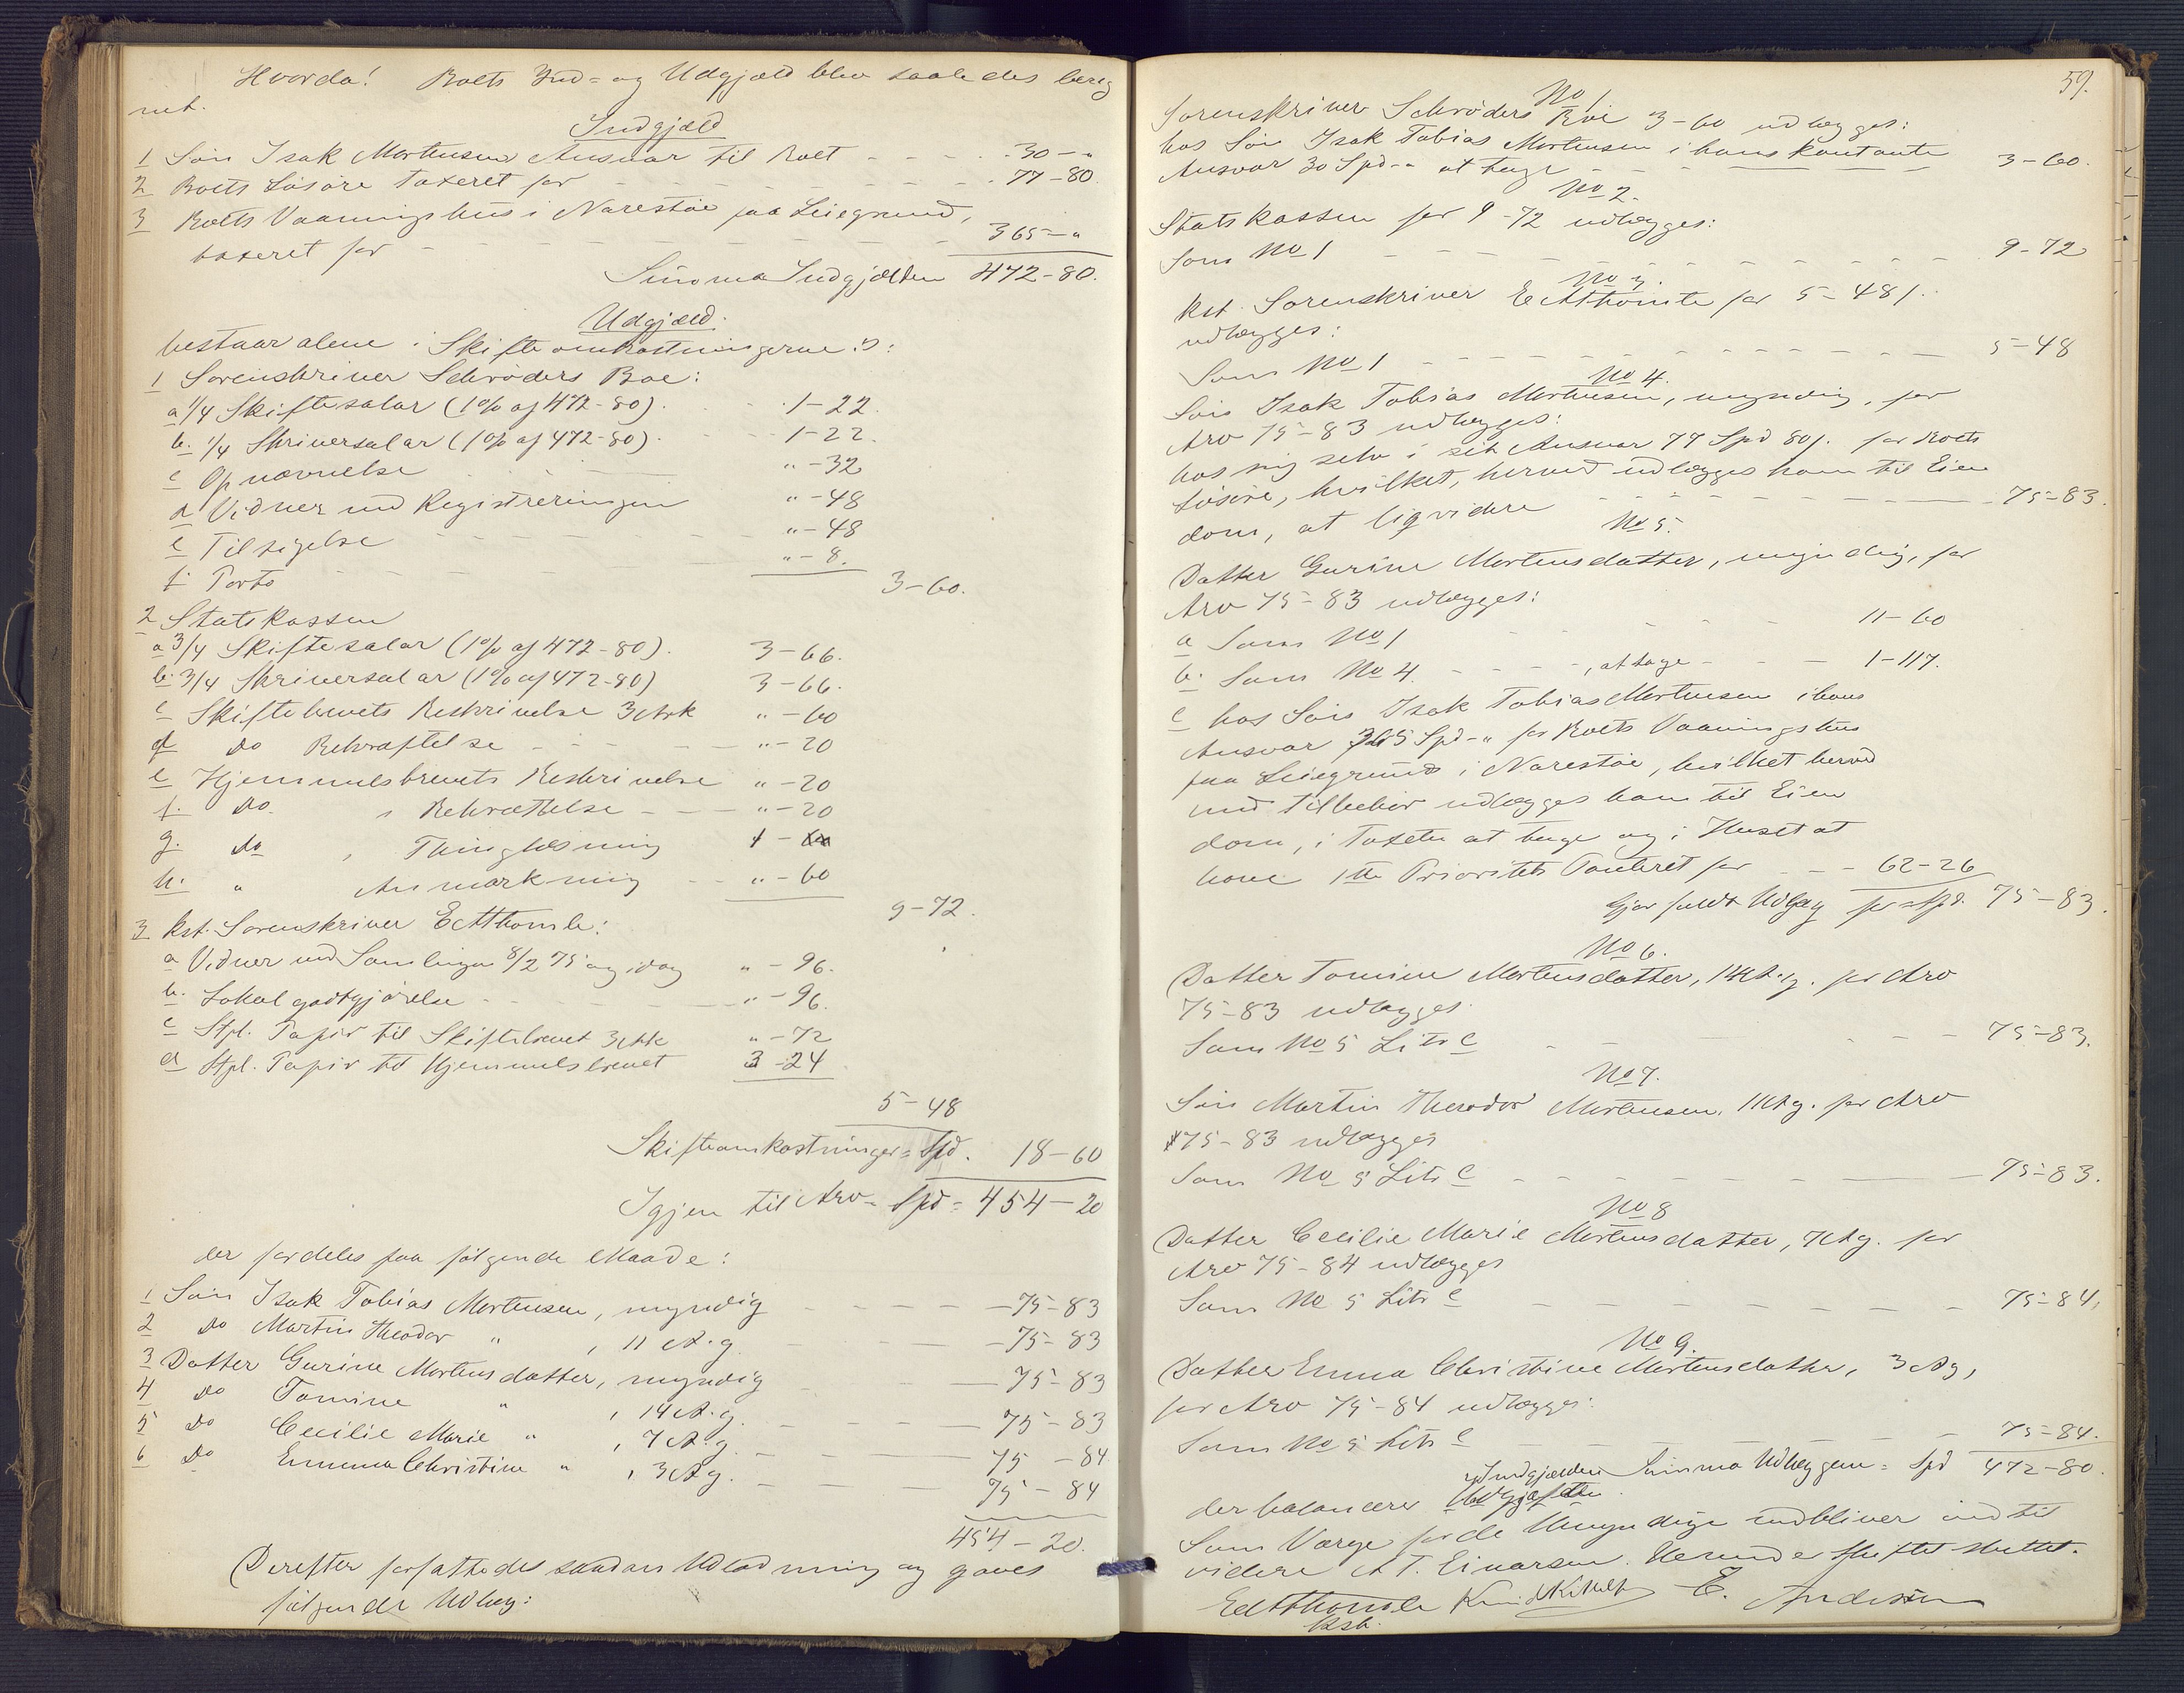 Hvorda! Boets Ind- og Udgjæld blev saaledes bereg
net.
Indgjæld
1 Søn Isak Mortensens Ansvar til Boet - - - 30 - "
2 Boets Løsøre taxeret for - - - 77 - 80.
3 Boets Vaaningshus i Narestøe paa Leiegrund,
taxeret for - - - 365 - "
Summa Indgjælden 472 - 80.
Udgjæld.
bestaar alene i Skifteomkostningerne :ɔ:
1 Sorenskriver Schrøders Boe:
a 1/4 Skiftesalær (1% af 472-80) . - - 1 - 22.
b. 1/4 Skriversalær (1% af 472-80) . - - 1 - 22.
c Opnævnelse - - " - 32
d Vidner ved Registreringen " - 48
e Tilsigelse - - - " - 48
f. Porto - - - " - 8.
3 - 60.
2 Statskassen
a 3/4 Skiftesalær (1% af 472-80). 3 - 66.
b. 3/4 Skriversalær (1% af 472-80) 3 - 66.
c Skiftebrevets Beskrivelse 3 Ark " - 60
d do Bekræftelse - - - " - 20
e Hjemmelsbrevets Beskrivelse " - 20
f. do. " Bekræftelse - - " - 20
g. do , Thinglæsning 1 -
h. " Anmærkning - - " - 60
9 - 72.
3 Kst. Sorenskriver E A Thomle:
a Vidner ved Samlingen 8/2 75 og idag " - 96.
b. Lokalgodtgjørelse - - - " - 96.
c Stpl. Papir til Skiftebrevet 3 Ark " - 72
d Stpl. Papir til Hjemmelsbrevet 3 - 24
5 - 48
Skifteomkostninger = Spd. 18 - 60
Igjen til Arv = Spd = 454 - 20
der fordeles paa følgende Maade:
1 Søn Isak Tobias Mortensen, myndig - - - 75 - 83
2 do Martin Theodor " , 11 A. g. - - 75 - 83
3 Datter Gurine Mortensdatter, myndig - - 75 - 83
4 do Tomine " , 14 A. g. - - - 75 - 83
5 do Cecilie Marie " , 7 A. g. - - - 75 - 84
6 do Emma Christine " , 3 A g. - - 75 - 84
454 - 20.
Derefter forfattedes saadan Udlodning og gaves
følgende Udlæg:
59.
No 1
Sorenskriver Schrøders Boe 3 - 60 udlægges:
hos Søn Isak Tobias Mortensen i hans kontante
Ansvar 30 Spd - " at tage - - - 3 - 60.
No 2.
Statskassen for 9 - 72 udlægges:
Som No 1 - - - 9 - 72
No 3.
Kst. Sorenskriver E A Thomle for 5 - 48 ß.
udlægges:
Som No 1 - - - 5 - 48
No 4.
Søn Isak Tobias Mortensen, myndig, for
Arv 75 - 83 udlægges:
hos sig selv i sit Ansvar 77 Spd 80 ß. for Boets
Løsøre, hvilket herved udlægges ham til Eien
dom, at liqvidere - - - 75 - 83.
No 5.
Datter Gurine Mortensdatter, myndig, for
Arv 75 - 83 udlægges:
a Som No 1 - - - 11 - 60
b. Som No 4. - - - , at tage - - 1 - 117.
c hos Søn Isak Tobias Mortensen i hans
Ansvar 365 Spd - " for Boets Vaaningshus
paa Leiegrund i Narestøe, hvilket herved
med Tilbehør udlægges ham til Eien
dom, i Taxten at tage og i Huset at
have 1ste Prioritets Panteret for - - - 62 - 26
Gjør fuldt Udlæg for Spd. 75 - 83.
No 6.
Datter Tomine Mortensdatter, 14 A. g. for Arv
75 - 83 udlægges
Som No 5 Litr c - - - 75 - 83.
No 7.
Søn Martin Theodor Mortensen, 11 A g. for Arv
75 - 83 udlægges
Som No 5 Litr c - - - 75 - 83.
No 8
Datter Cecilie Marie Mortensdatter, 7 A g. for
Arv 75 - 84 udlægges
Som No 5 Litr c - - - 75 - 84,
No 9.
Datter Emma Christine Mortensdatter, 3 A g,
for Arv 75 - 84 udlægges:
Som No 5 Litr c - - - 75 - 84.
Summa Udlæggene = Spd 472 - 80.
Indgjælden
der balancerer Udgjælden.
Som Værge for de Umyndige vedbliver indtil
videre A T. Einarsen. Herved Skiftet sluttet.
E A Thomle E. Andersen
Kst.